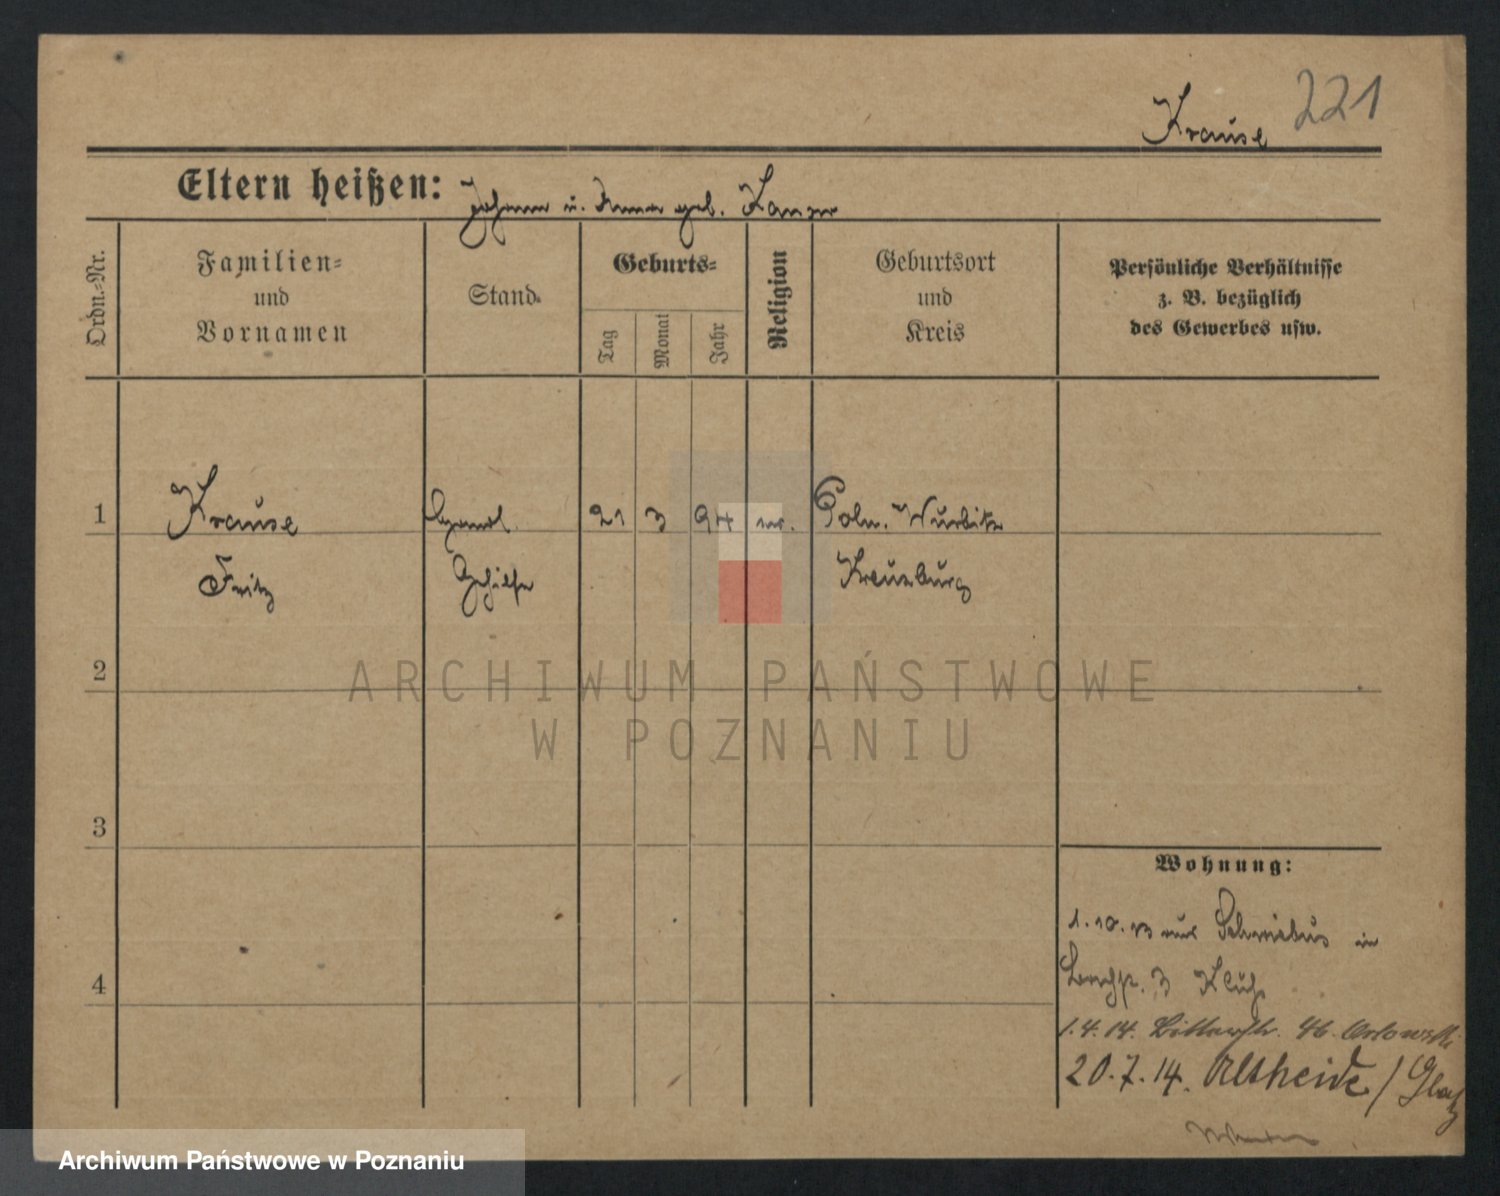 221
Krause
Eltern heißen: Johann u. Anna geb.
Ordn.-Nr.
Familien-
und
Vornamen
Stand.
Geburts-
Tag
Monat
Jahr
Religion
Geburtsort
und
Kreis
Persönliche Verhältnisse
z. B. bezüglich
des Gewerbes usw.
1
Krause
Fritz
Gehilfe
21
3
94
ev.
Poln. Würbitz
Kreuzburg
2
3
4
Wohnung:
1.10.13 aus Schwiebus in
3
1.4.14. 46. Orlowski
20.7.14. Altheide / Glatz
ARCHIWUM PAŃSTWOWE
W POZNANIU
Archiwum Państwowe w Poznaniu